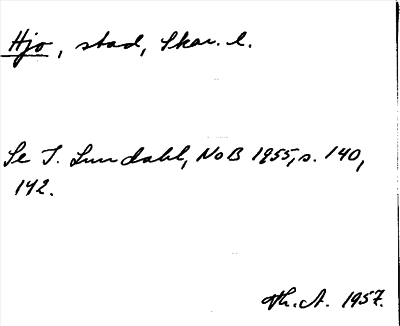 Hjo, stad, Skar. l.
Se I. Lundahl, NoB 1955, s. 140,
142.
Th. A. 1957.